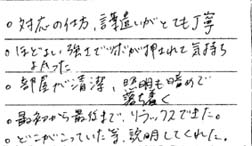 ○対応の仕方、言葉遣いがとても丁寧
○ほどよい強さでツボが押されて気持ち
よかった
○部屋が清潔、照明も暗めで
落ち着く
○最初から最後まで、リラックスできた。
○どこがこっていた等、説明してくれた。